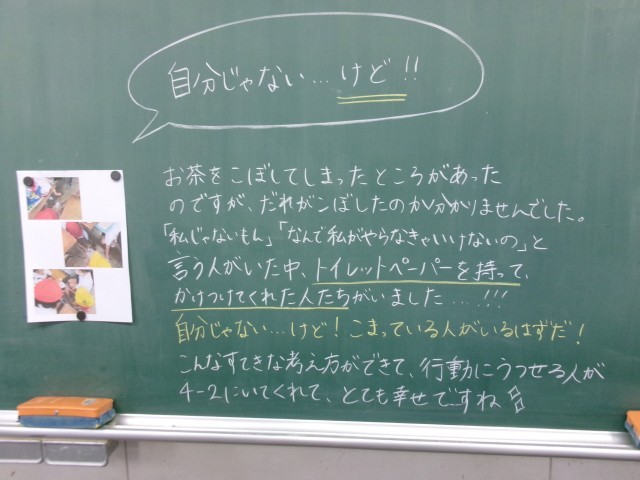 自分じゃない…けど!!
お茶をこぼしてしまったところがあった
のですが、だれがこぼしたのか分かりませんでした。
「私じゃないもん」「なんで私がやらなきゃいけないの」と
言う人がいた中、トイレットペーパーを持って、
かけつけてくれた人たちがいました…!!!
自分じゃない…けど!こまっている人がいるはずだ!
こんなすてきな考え方ができて、行動にうつせる人が
4-2にいてくれて、とても幸せですね